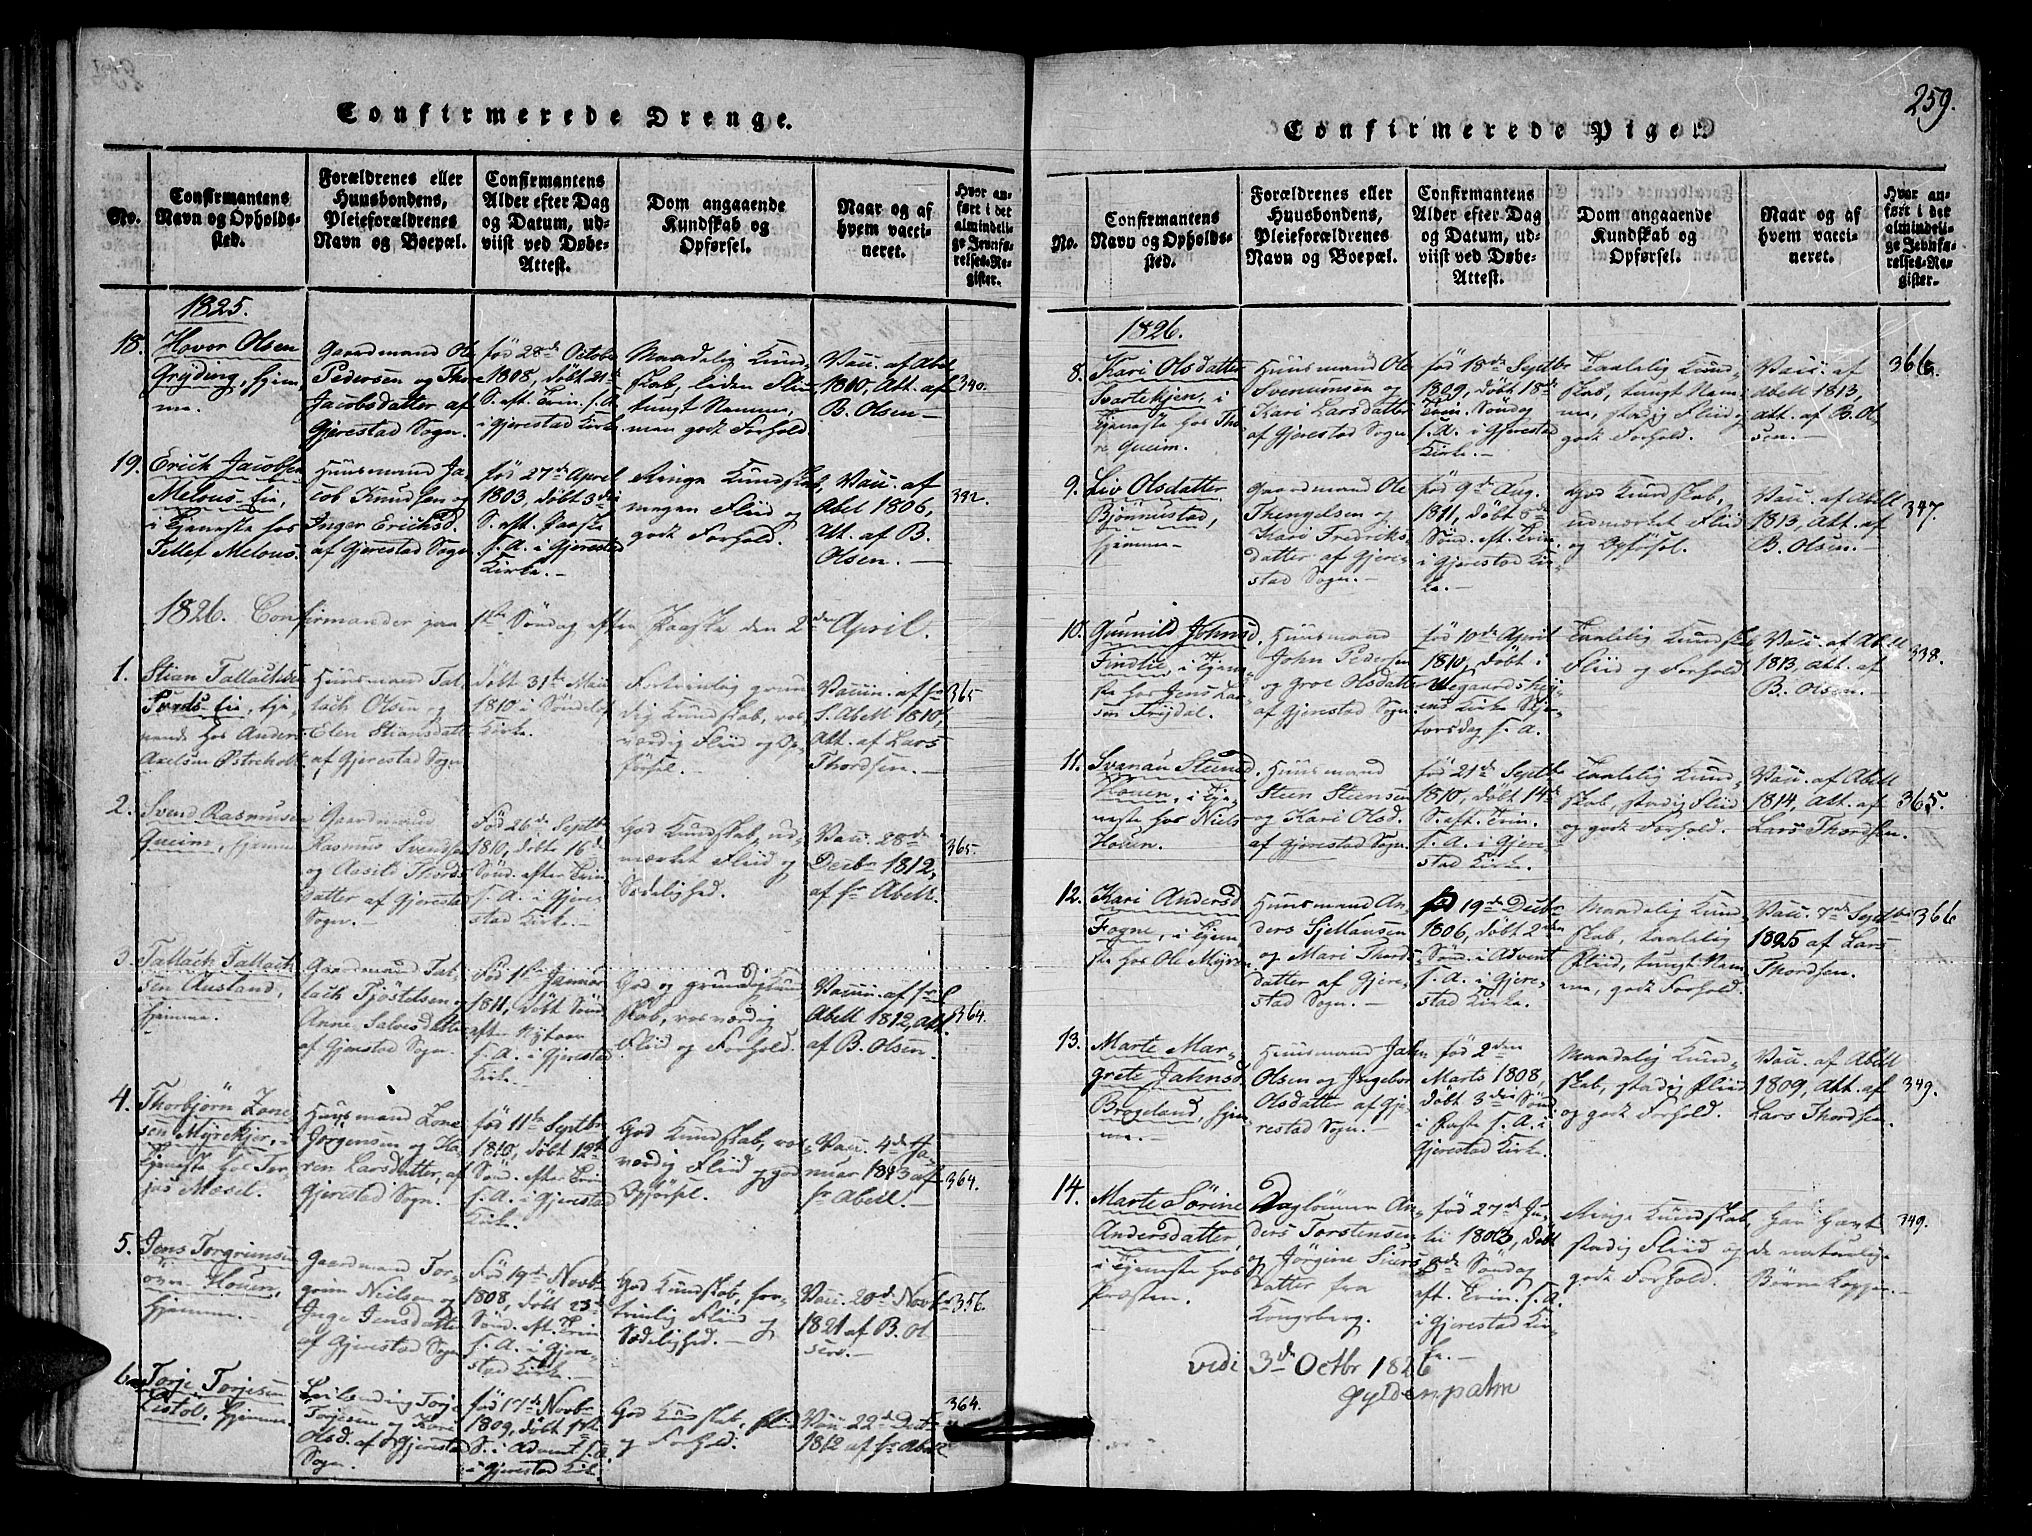 Confirmerede Drenge.
No.
Confirmantens
Navn og Opholds-
sted.
Forældrenes eller
Huusbondens,
Pleieforældrenes
Navn og Boepæl.
Confirmantens
Alder efter Dag
og Datum, ud-
viist ved Døbe-
Attest.
Dom angaaende
Kundskab og
Opførsel.
Naar og af
hvem vacci-
neret.
Hvor an-
ført i det
almindeli-
ge Jevnfø-
relses-Re-
gister.
1825.
18. Hovor Olsen
Gryting, hjem-
me.
Gaardmand Ole
Pedersen og Thore
Jacobsdatter af
Gjerestad Sogn.
fød 28de Octobr
1808, døbt 21de
S. eft. Trin. s. A.
i Gjerestad Kirke
Maadelig Kund-
skab, liden Fliid
tungt Nemme,
men godt Forhold.
Vacc. af Abel
1810, Att. af
B. Olsen —
340.
19. Erich Jacobsen
Melaas-Eie,
i Tjeneste hos
Tellef Melaas.
Huusmand Ja-
cob Knudsen og
Inger Erichsd.
af Gjerestad Sogn
fød 27de April
1803, døbt 3die
S. eft. Paaske
s. A. i Gjerestad
Kirke. —
Ringe Kundskab,
megen Fliid og
godt Forhold.
Vacc. af
Abel 1806,
Att. af B.
Olsen. —
332.
1826. Confirmander paa 1ste Søndag efter Paaske den 2den April.
1. Stian Tallachsen
Eie, tje-
nende hos Anders
Axelsen Østreholt
Huusmand Tal-
lach Olsen og
Elen Stiansdatter
af Gjerestad Sogn
døbt 31te Maii
1810 i Søndeløv
Kirke.
Fortrinlig grun-
dig Kundskab, ros-
værdig Fliid og Op-
førsel. —
Vacc. af Hr
S. Abell 1810,
Att. af Lars
Thordsen. —
365
2. Svend Rasmusen
Qveim, hjemme
Gaardmand
Rasmus Svendsen
og Aasild Thords
datter af Gjerestad
Sogn.
Fød 26de Septbr
1810, døbt 16de
Sønd. efter Trin
s. A. i Gjere-
stad Kirke.
God Kundskab, ud-
mærket Fliid og
Sædelighed.
Vacc. 28de
Decbr 1812,
af Hr Abell.
365.
3. Tallach Tallach
sen Ausland,
hjemme.
Gaardmand Tal-
lach Tjøstelsen og
Anne Salvesdatter
af Gjerestad Sogn.
Fød 1ste Januar
1811, døbt Sønd.
efter Nytaar
s. A. i Gjerestad
Kirke.
God og grundig Kund
skab, rosværdig
Fliid og Forhold.
Vacc. af Hr
Abell 1812, Att.
af B. Olsen.
364.
4. Thorbjørn Lone
sen Myrekjer, i
Tjeneste hos Ter-
jus Moset.
Huusmand Lone
Jørgensen og Ka-
ren Larsdatter, af
Gjerestad Sogn.
fød 11te Septbr
1810, døbt 12te
Sønd. efter Trin
s. A. i Gjerestad
Kirke.
God Kundskab, ros-
værdig Fliid og god
Opførsel.
Vacc. 4de Ja-
nuar 1813 af
Hr Abell.
364.
5. Jens Torgrimsen
øvre Houen,
hjemme.
Gaardmand Tor-
grim Nielsen og
Inge Jensdatter
af Gjerestad Sogn
Fød 19de Novbr
1808, døbt 23de
Sønd. eft. Trin
s. A. i Gjere-
stad Kirke
God Kundskab, for-
trinlig Fliid og
Sædelighed. —
Vacc. 20de Novbr
1821 af B. Ol
sen.
356.
6. Torje Torjesen
Listøl, hjemme
Leilending Torje
Torjesen og Lore
Olsd. af Gjerestad
Sogn.
fød 17de Novbr
1809, døbt 1ste
S. i Advent s. A.
i Gjerestad Kirke.
God Kundskab, Fliid
og Forhold.
Vacc. 22de Decbr
1812 af Hr Abell
364.
259.
Confirmerede Piger.
No.
Confirmantens
Navn og Opholds-
sted.
Forældrenes eller
Huusbondens,
Pleieforældrenes
Navn og Boepæl.
Confirmantens
Alder efter Dag
og Datum, ud-
viist ved Døbe-
Attest.
Dom angaaende
Kundskab og
Opførsel.
Naar og af
hvem vacci-
neret.
Hvor an-
ført i det
almindeli-
ge Jevnfø-
relses-Re-
gister.
1826.
8. Kari Olsdatter
Svartekjen, i
Tjeneste hos Tho
re Qveim.
Huusmand Ole
Svenumsen og
Kari Larsdatter
af Gjerestad Sogn
fød 18de Septbr
1809, døbt 18de
Trin. Søndag
s. A. i Gjerestad
Kirke —
Taalelig Kund-
skab, tungt Nem-
me, stadig Fliid og
godt Forhold.
Vacc. af
Abell 1813,
Att. af B. Ol
sen. —
366.
9. Liv Olsdatter
Bjønnestad,
hjemme —
Gaardmand Ole
Thengelsen og
Kari Fredriks
datter af Gjere-
stad Sogn. —
fød 9de Aug.
1811, døbt 8de
Sønd. eft. Trin.
i Gjerestad Kir-
ke. —
God Kundskab,
udmærket Fliid
og Opførsel.
Vacc. af Abell
1813, Att. af
B. Olsen. —
347.
10. Gunnild Johnsd.
Findlie, i Tjene-
ste hos Jens Lar-
sen Trydal.
Huusmand
John Pedersen
og Groe Olsdatter
af Gjerestad Sogn.
fød 10de April
1810, døbt i
Wegaardshey-
ens Kirke Skjer-
torsdag s. A.
Taalelig Kundskab
Fliid og Forhold
Vacc. af Abell
1813, Att. af
B. Olsen. —
338.
11. Svanau Steensd
Houen, i Tje-
neste hos Niels
Houen.
Huusmand
Steen Steensen
og Kari Olsd.
af Gjerestad Sogn.
fød 21de Septbr
1810, døbt 14de
S. eft. Trin.
s. A. i Gjere-
stad Kirke.
Taalelig Kund-
skab, stadig Fliid
og godt Forhold.
Vacc. af Abell
1814, Att. af
Lars Thordsen.
365.
12. Kari Andersd
Fogne, i Tjene-
ste hos Ole Myren
Huusmand An-
ders Sjellausen
og Mari Thord
datter af Gjere-
stad Sogn. —
fød 19de Decbr
1806, døbt 2den
Sønd. i Advent
s. A. i Gjere-
stad Kirke.
Maadelig Kund-
skab, taalelig
Fliid, tungt Nem-
me, godt Forhold.
Vacc. 7de Septbr
1825 af Lars
Thordsen.
366
13. Marte Mar-
grete Jahnsd.
Brogeland, hjem-
me. —
Huusmand Jahn
Olsen og Ingebor
Olsdatter af Gje-
restad Sogn.
fød 2den
Marts 1808,
døbt 3die Sønd
i Faste s. A. i
Gjerestad Kirke.
Maadelig Kund-
skab, stadig Fliid
og godt Forhold.
Vacc. af Abell
1809, Att. af
Lars Thordsen.
349.
14. Marte Sørine
Andersdatter,
i Tjeneste hos
Præsten.
Daglønner An-
ders Torstensen
og Jørgine Siurs
datter fra
Kongsberg.
fød 27de Ju-
lii 1803, døbt
8de Søndag
eft. Trin. s. A.
i Gjerestad Kir-
ke. —
Ringe Kundskab,
stadig Fliid og
godt Forhold.
Har havt
de naturlige
Børnekopper. —
349.
vidi 3de Octbr 1826
Gyldenpalm